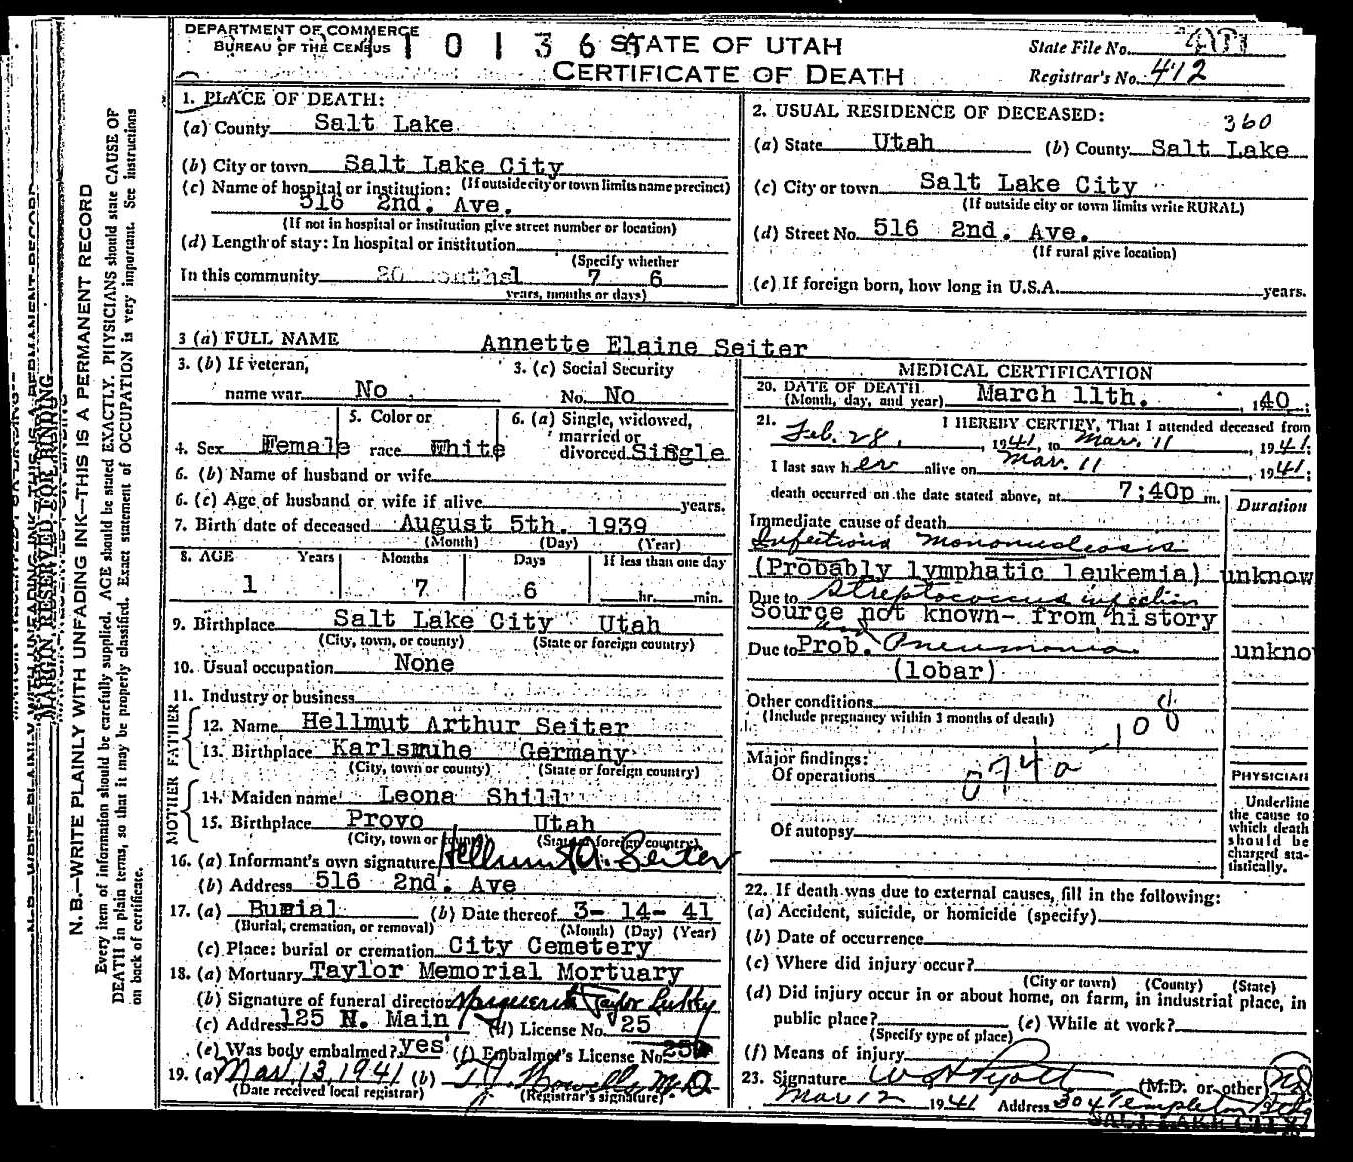 DEPARTMENT OF COMMERCE
BUREAU OF THE CENSUS
STATE OF UTAH
CERTIFICATE OF DEATH
State File No.
Registrar's No. 412
1. PLACE OF DEATH:
(a) County Salt Lake
(b) City or town Salt Lake City
(If outside city or town limits name precinct)
(c) Name of hospital or institution:
516 2nd. Ave.
(If not in hospital or institution give street number or location)
(d) Length of stay: In hospital or institution
(Specify whether
In this community 20 months 1 7 6
years, months or days)
2. USUAL RESIDENCE OF DECEASED:
360
(a) State Utah (b) County Salt Lake
(c) City or town Salt Lake City
(If outside city or town limits write RURAL)
(d) Street No. 516 2nd. Ave.
(If rural give location)
(e) If foreign born, how long in U.S.A. years.
3 (a) FULL NAME Annette Elaine Seiter
3. (b) If veteran,
name war No
3. (c) Social Security
No. No
4. Sex Female
5. Color or
race White
6. (a) Single, widowed,
married or
divorced Single
6. (b) Name of husband or wife
6. (c) Age of husband or wife if alive years.
7. Birth date of deceased August 5th. 1939
(Month) (Day) (Year)
8. AGE Years Months Days If less than one day
1 7 6 hr. min.
9. Birthplace Salt Lake City Utah
(City, town, or county) (State or foreign country)
10. Usual occupation None
11. Industry or business
FATHER
12. Name Hellmut Arthur Seiter
13. Birthplace Karlsruhe Germany
(City, town or county) (State or foreign country)
MOTHER
14. Maiden name Leona Shill
15. Birthplace Provo Utah
(City, town or county) (State or foreign country)
16. (a) Informant's own signature Hellmut A. Seiter
(b) Address 516 2nd. Ave
17. (a) Burial (b) Date thereof 3- 14- 41
(Burial, cremation, or removal) (Month) (Day) (Year)
(c) Place: burial or cremation City Cemetery
18. (a) Mortuary Taylor Memorial Mortuary
(b) Signature of funeral director Marguerite Taylor
(c) Address 125 N. Main (d) License No. 25
(e) Was body embalmed? yes (f) Embalmer's License No. 250
19. (a) Mar. 13, 1941 (b) T.J. Howells M.D
(Date received local registrar) (Registrar's signature)
MEDICAL CERTIFICATION
20. DATE OF DEATH March 11th. , 1940;
(Month, day, and year)
21. I HEREBY CERTIFY, That I attended deceased from
Feb. 28, 1941, to Mar. 11, 1941;
I last saw her alive on Mar. 11, 1941;
death occurred on the date stated above, at 7;40p m.
Duration
Immediate cause of death
Infectious mononucleosis
(Probably lymphatic leukemia) unknow
Due to Streptococcus infection
Source not known- from history
and
Due to Prob. Pneumonia unkno
(lobar)
Other conditions
(Include pregnancy within 3 months of death)
Major findings:
Of operations
074a - 108
Of autopsy
PHYSICIAN
Underline
the cause to
which death
should be
charged sta-
tistically.
22. If death was due to external causes, fill in the following:
(a) Accident, suicide, or homicide (specify)
(b) Date of occurrence
(c) Where did injury occur?
(City or town) (County) (State)
(d) Did injury occur in or about home, on farm, in industrial place, in
public place? (e) While at work?
(Specify type of place)
(f) Means of injury
23. Signature (M.D. or other)
Mar 12 1941 Address 304 Templeton Bldg
SALT LAKE CITY
N. B.—WRITE PLAINLY WITH UNFADING INK—THIS IS A PERMANENT RECORD
Every item of information should be carefully supplied. AGE should be stated EXACTLY. PHYSICIANS should state CAUSE OF
DEATH in plain terms, so that it may be properly classified. Exact statement of OCCUPATION is very important. See instructions
on back of certificate.
MARGIN RESERVED FOR BINDING